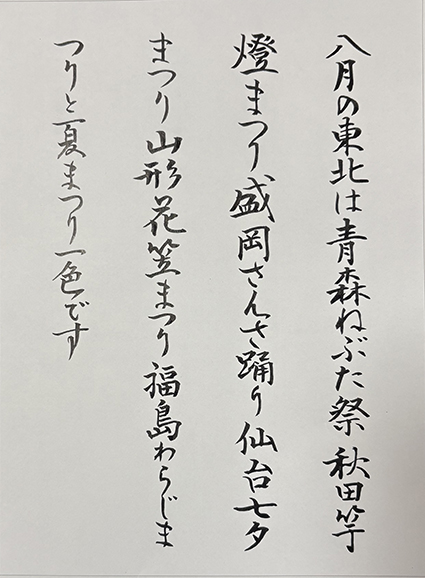 八月の東北は青森ねぶた祭秋田竿
燈まつり盛岡さんさ踊り仙台七夕
まつり山形花笠まつり福島わらじま
つりと夏まつり一色です